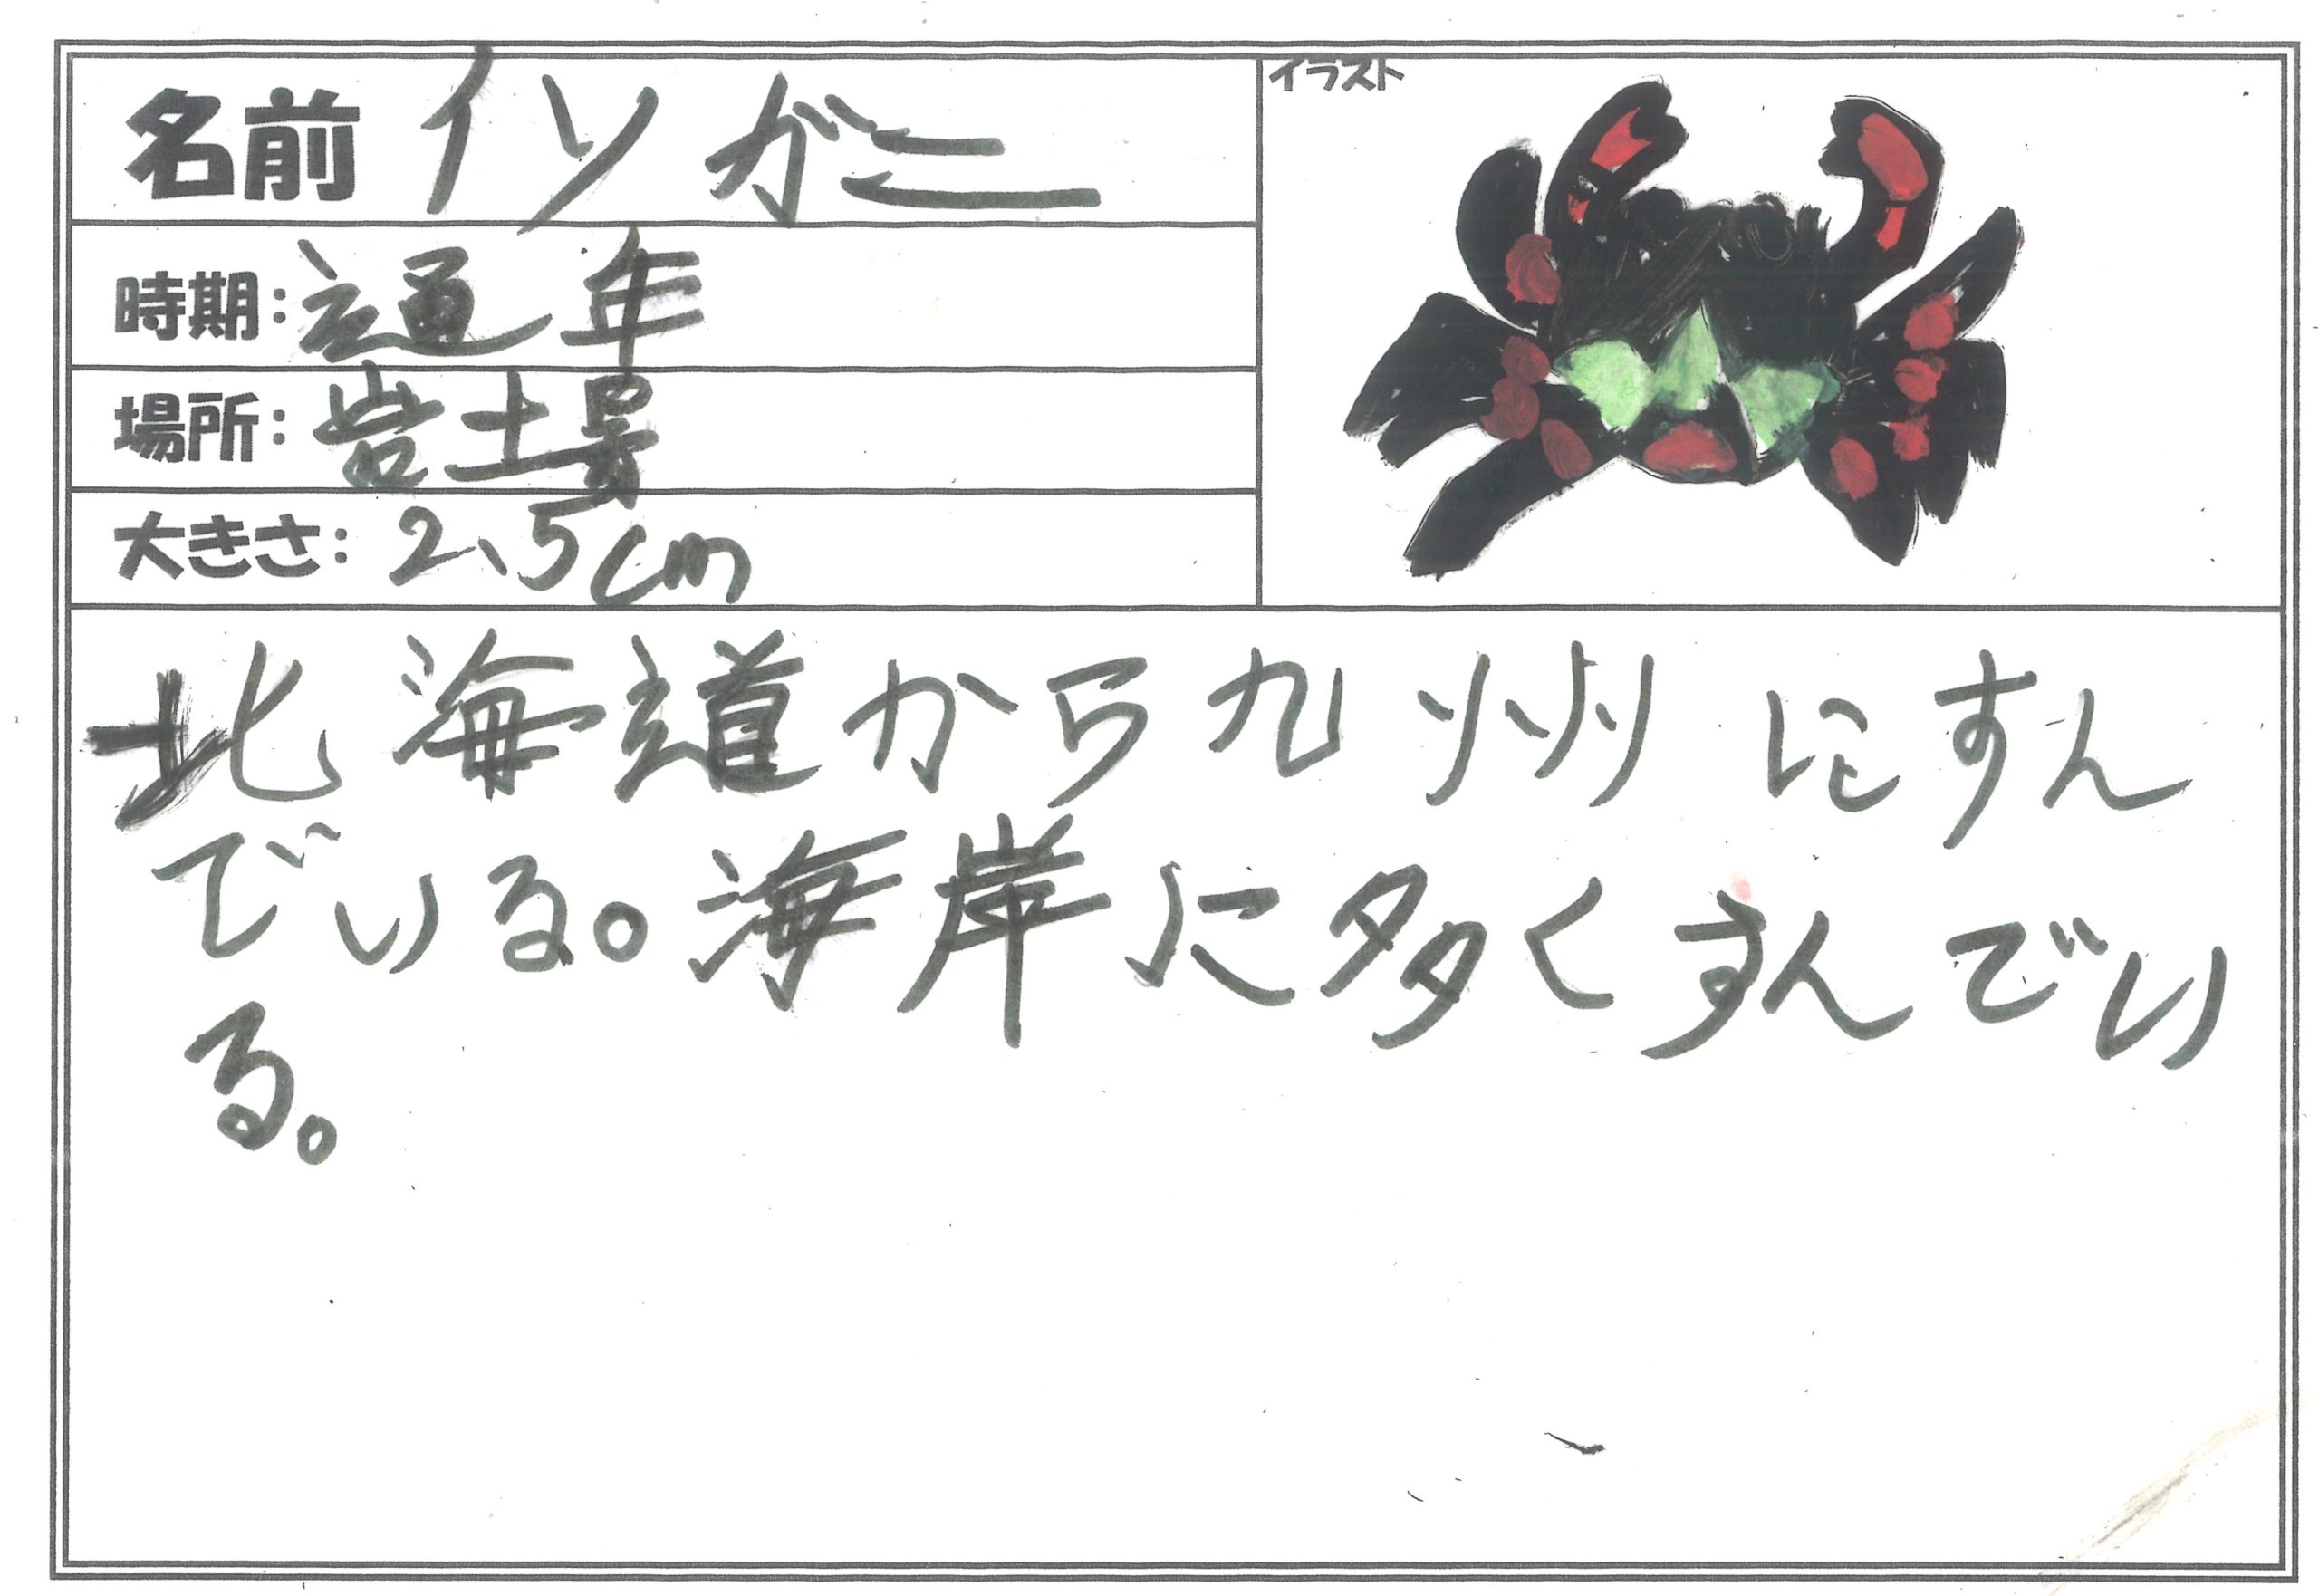 名前 イソガニ
イラスト
時期: 通年
場所: 岩場
大きさ: 2.5cm
北海道から九州にすん
でいる。海岸に多くすんでい
る。